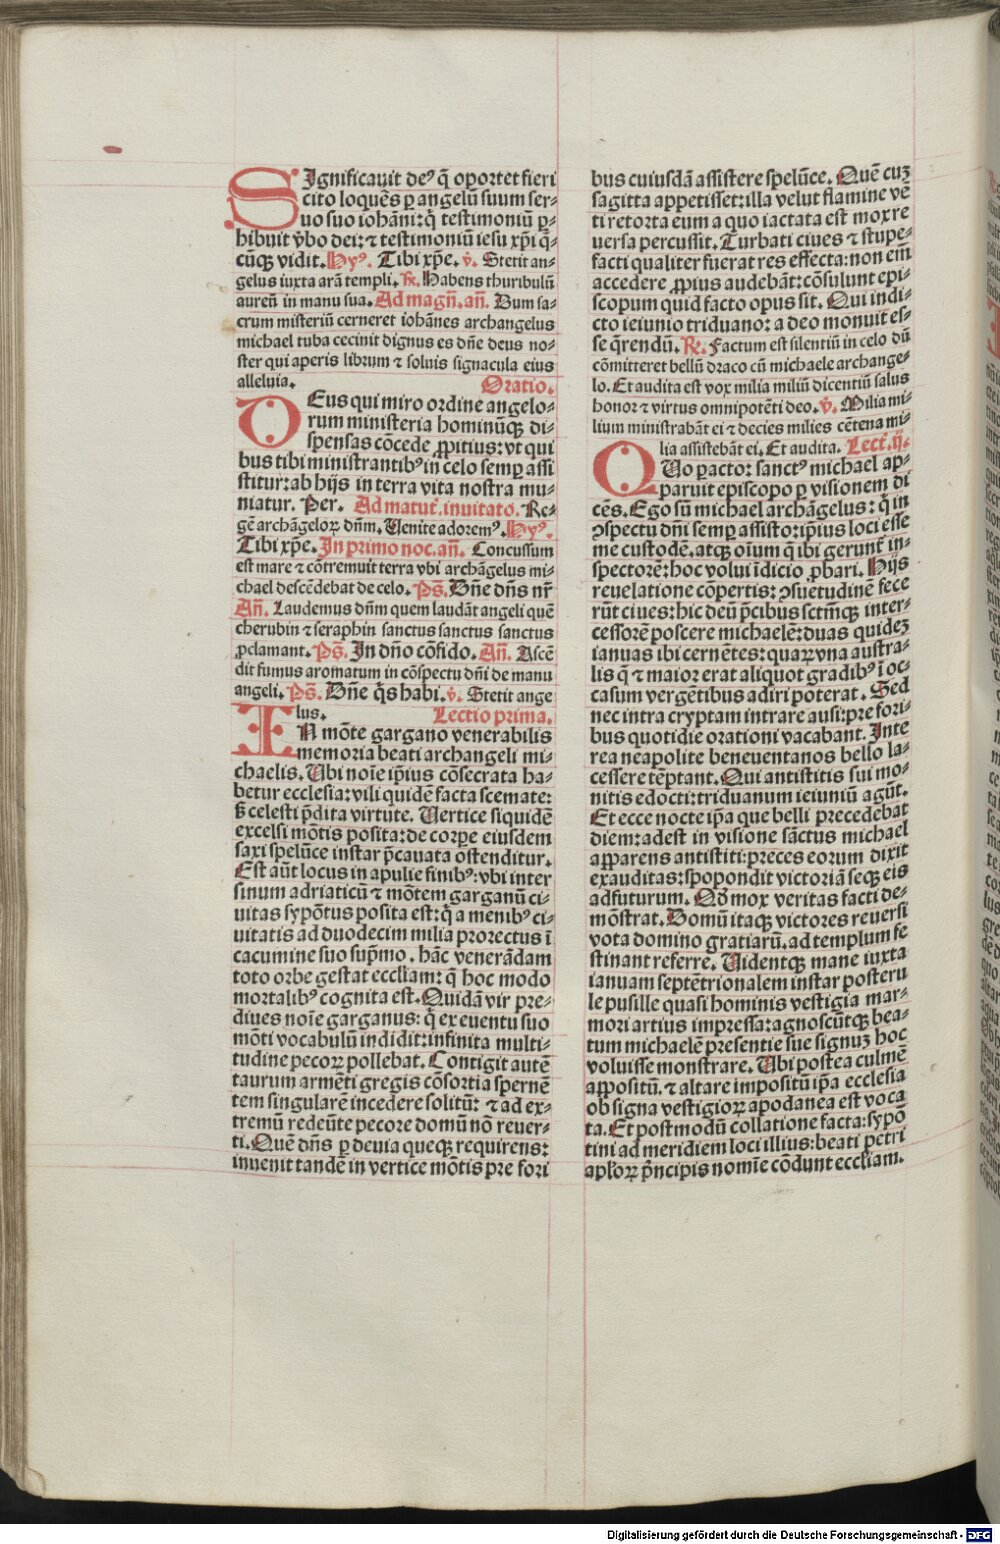 SIgnificavit deꝰ q̄ oportet fieri
cito loquēs ꝑ angelū suum ser⸗
uo suo iohāni: q̄ testimoniū ꝑ⸗
hibuit v̄bo dei: ⁊ testimoniū iesu xp̄i q̄⸗
cūqꝫ vidit. Hyꝰ. Tibi xp̄e. v̄. Stetit an⸗
gelus iuxta arā templi. R̄. Habens thuribulū
aureū in manu sua. Ad magn̄. an̄. Dum sa⸗
crum misteriū cerneret iohānes archangelus
michael tuba cecinit dignus es dn̄e deus no⸗
ster qui aperis librum ⁊ soluis signacula eius
alleluia. Oratio.
DEus qui miro ordine angelo⸗
rum ministeria hominūqꝫ di⸗
spensas cōcede ꝓpitius: vt qui
bus tibi ministrantibꝰ in celo semꝑ assi
stitur: ab hijs in terra vita nostra mu⸗
niatur. Per. Ad matut̄. inuitato. Re⸗
gē archāgeloꝝ dn̄m. Uenite adoremꝰ. Hyꝰ.
Tibi xp̄e. In primo noc. an̄. Concussum
est mare ⁊ cōtremuit terra vbi archāgelus mi⸗
chael descēdebat de celo. Ps̄. Dn̄e dn̄s nr̄
An̄. Laudemus dn̄m quem laudāt angeli quē
cherubin ⁊ seraphin sanctus sanctus sanctus
ꝓclamant. Ps̄. In dn̄o cōfido. An̄. Ascē
dit fumus aromatum in cōspectu dn̄i de manu
angeli. Ps̄. Dn̄e q̄s habi. v̄. Stetit ange
lus. Lectio prima.
IN mōte gargano venerabilis
memoria beati archangeli mi⸗
chaelis. Ubi noīe ip̄ius cōsecrata ha⸗
betur ecclesia: vili quidē facta scemate:
s̄ celesti p̄dita virtute. Uertice siquidē
excelsi mōtis posita: de corꝑe eiusdem
saxi spelūce instar p̄cauata ostenditur.
Est aūt locus in apulie finibꝰ: vbi inter
sinum adriaticū ⁊ mōtem garganū ci⸗
uitas sypōtus posita est: q̄ a menibꝰ ci⸗
uitatis ad duodecim milia prorectus ī
cacumine suo sup̄mo. hāc venerādam
toto orbe gestat eccliam: q̄ hoc modo
mortalibꝰ cognita est. Quidā vir pre⸗
diues noīe garganus: q̄ ex euentu suo
mōti vocabulū indidit: infinita multi⸗
tudine pecoꝝ pollebat. Contigit autē
taurum armēti gregis cōsortia spernē
tem singularē incedere solitū: ⁊ ad ex⸗
tremū redeūte pecore domū nō reuer⸗
ti. Quē dn̄s ꝑ deuia queqꝫ requirens:
inuenit tandē in vertice mōtis pre fori
bus cuiusdā assistere spelūce. Quē cuꝫ
sagitta appetisset: illa velut flamine vē
ti retorta eum a quo iactata est mox re
uersa percussit. Turbati ciues ⁊ stupe⸗
facti qualiter fuerat res effecta: non em̄
accedere ꝓpius audebāt: cōsulunt epi⸗
scopum quid facto opus sit. Qui indi⸗
cto ieiunio triduano: a deo monuit es⸗
se q̄rendū. R̄. Factum est silentiū in celo dū
cōmitteret bellū draco cū michaele archange⸗
lo. Et audita est vox milia miliū dicentiū salus
honor ⁊ virtus omnipotēti deo. v̄. Milia mi⸗
lium ministrabāt ei ⁊ decies milies cētena mi⸗
lia assistebāt ei. Et audita. Lect̄. ij.
QUo pacto: sanctꝰ michael ap⸗
paruit episcopo ꝑ visionem di
cēs. Ego sū michael archāgelus: q̄ in
ꝯspectu dn̄i semꝑ assisto: ip̄ius loci esse
me custodē. atqꝫ oīum q̄ ibi gerunt̄ in⸗
spectorē: hoc volui īdicio ꝓbari. Hijs
reuelatione cōpertis: ꝯsuetudinē fece
rūt ciues: hic deū p̄cibus sctm̄qꝫ inter⸗
cessorē poscere michaelē: duas quideꝫ
ianuas ibi cernētes: quaꝝ vna austra⸗
lis q̄ ⁊ maior erat aliquot gradibꝰ ī oc⸗
casum vergētibus adiri poterat. Sed
nec intra cryptam intrare ausi: pre fori⸗
bus quotidie orationi vacabant. Inte
rea neapolite beneuentanos bello la⸗
cessere tēptant. Qui antistitis sui mo⸗
nitis edocti: triduanum ieiuniū agūt.
Et ecce nocte ip̄a que belli precedebat
diem: adest in visione sāctus michael
apparens antistiti: preces eorum dixit
exauditas: spopondit victoriā seqꝫ eis
adfuturum. Qd̄ mox veritas facti de⸗
mōstrat. Domū itaqꝫ victores reuersi
vota domino gratiarū. ad templum fe
stinant referre. Uidentqꝫ mane iuxta
ianuam septētrionalem instar posteru
le pusille quasi hominis vestigia mar⸗
mori artius impressa: agnoscūtqꝫ bea⸗
tum michaelē presentie sue signuꝫ hoc
voluisse monstrare. Ubi postea culmē
appositū. ⁊ altare impositū ip̄a ecclesia
ob signa vestigioꝝ apodanea est voca
ta. Et postmodū collatione facta: sypō
tini ad meridiem loci illius: beati petri
apl̄oꝝ p̄ncipis nomīe cōdunt eccliam.
Digitalisierung gefördert durch die Deutsche Forschungsgemeinschaft - DFG